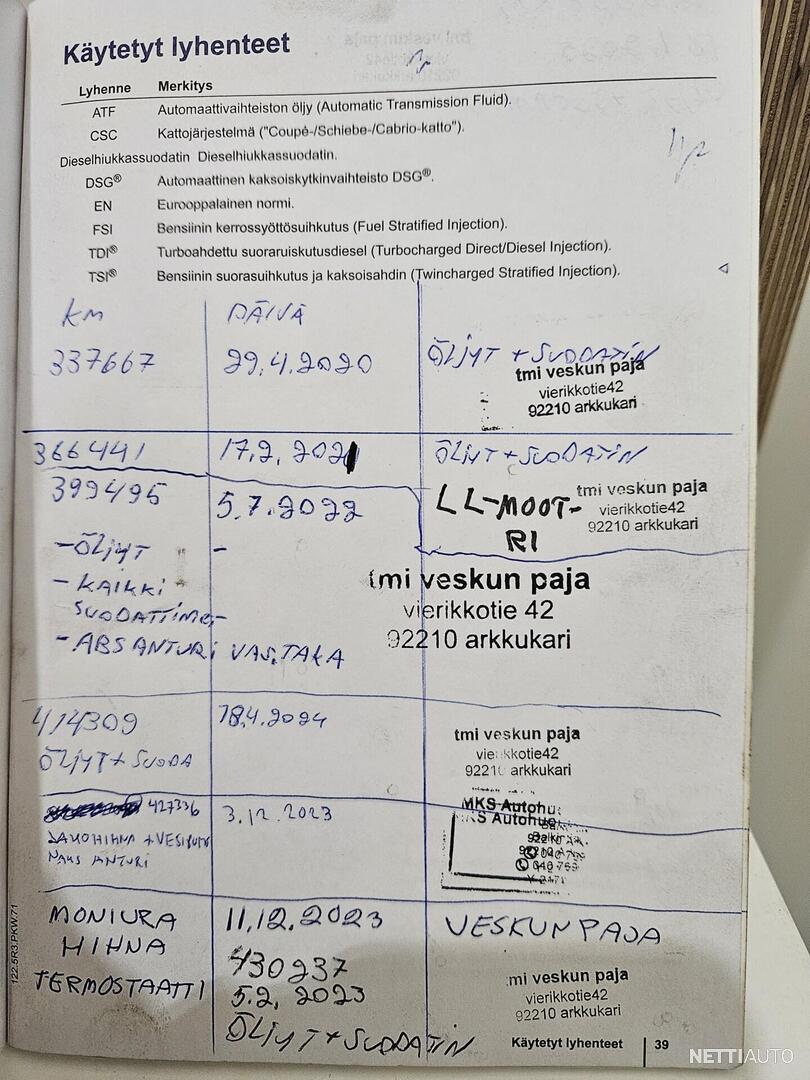 Käytetyt lyhenteet
Lyhenne Merkitys
ATF Automaattivaihteiston öljy (Automatic Transmission Fluid).
CSC Kattojärjestelmä ("Coupé-/Schiebe-/Cabrio-katto").
Dieselhiukkassuodatin Dieselhiukkassuodatin.
DSG® Automaattinen kaksoiskytkinvaihteisto DSG®.
EN Eurooppalainen normi.
FSI Bensiinin kerrossyöttösuihkutus (Fuel Stratified Injection).
TDI® Turboahdettu suoraruiskutusdiesel (Turbocharged Direct/Diesel Injection).
TSI® Bensiinin suorasuihkutus ja kaksoisahdin (Twincharged Stratified Injection).
KM PÄIVÄ
337667 29.4.2020 ÖLJYT + SUODATIN
tmi veskun paja
vierikkotie42
92210 arkkukari
366441 17.2.2021 ÖLJYT + SUODATIN
399495 5.7.2022 LL-MOOT-
RI
tmi veskun paja
vierikkotie42
92210 arkkukari
-ÖLJYT -
- KAIKKI
SUODATTIME-
- ABS ANTURI VAS.TAKA
tmi veskun paja
vierikkotie 42
92210 arkkukari
414309 18.4.2024
ÖLJYT + SUODA
tmi veskun paja
vierikkotie42
92210 arkkukari
427336 3.12.2023
JAKOHIHNA + VESIPUMP
ANTURI
MKS Autohu
MONIURA 11.12.2023 VESKUN PAJA
HIHNA
TERMOSTAATTI
430237
5.2.2023
ÖLJYT + SUODATIN
tmi veskun paja
vierikkotie42
92210 arkkukari
122.5R3.PKW.71
Käytetyt lyhenteet 39
NETTIAUTO